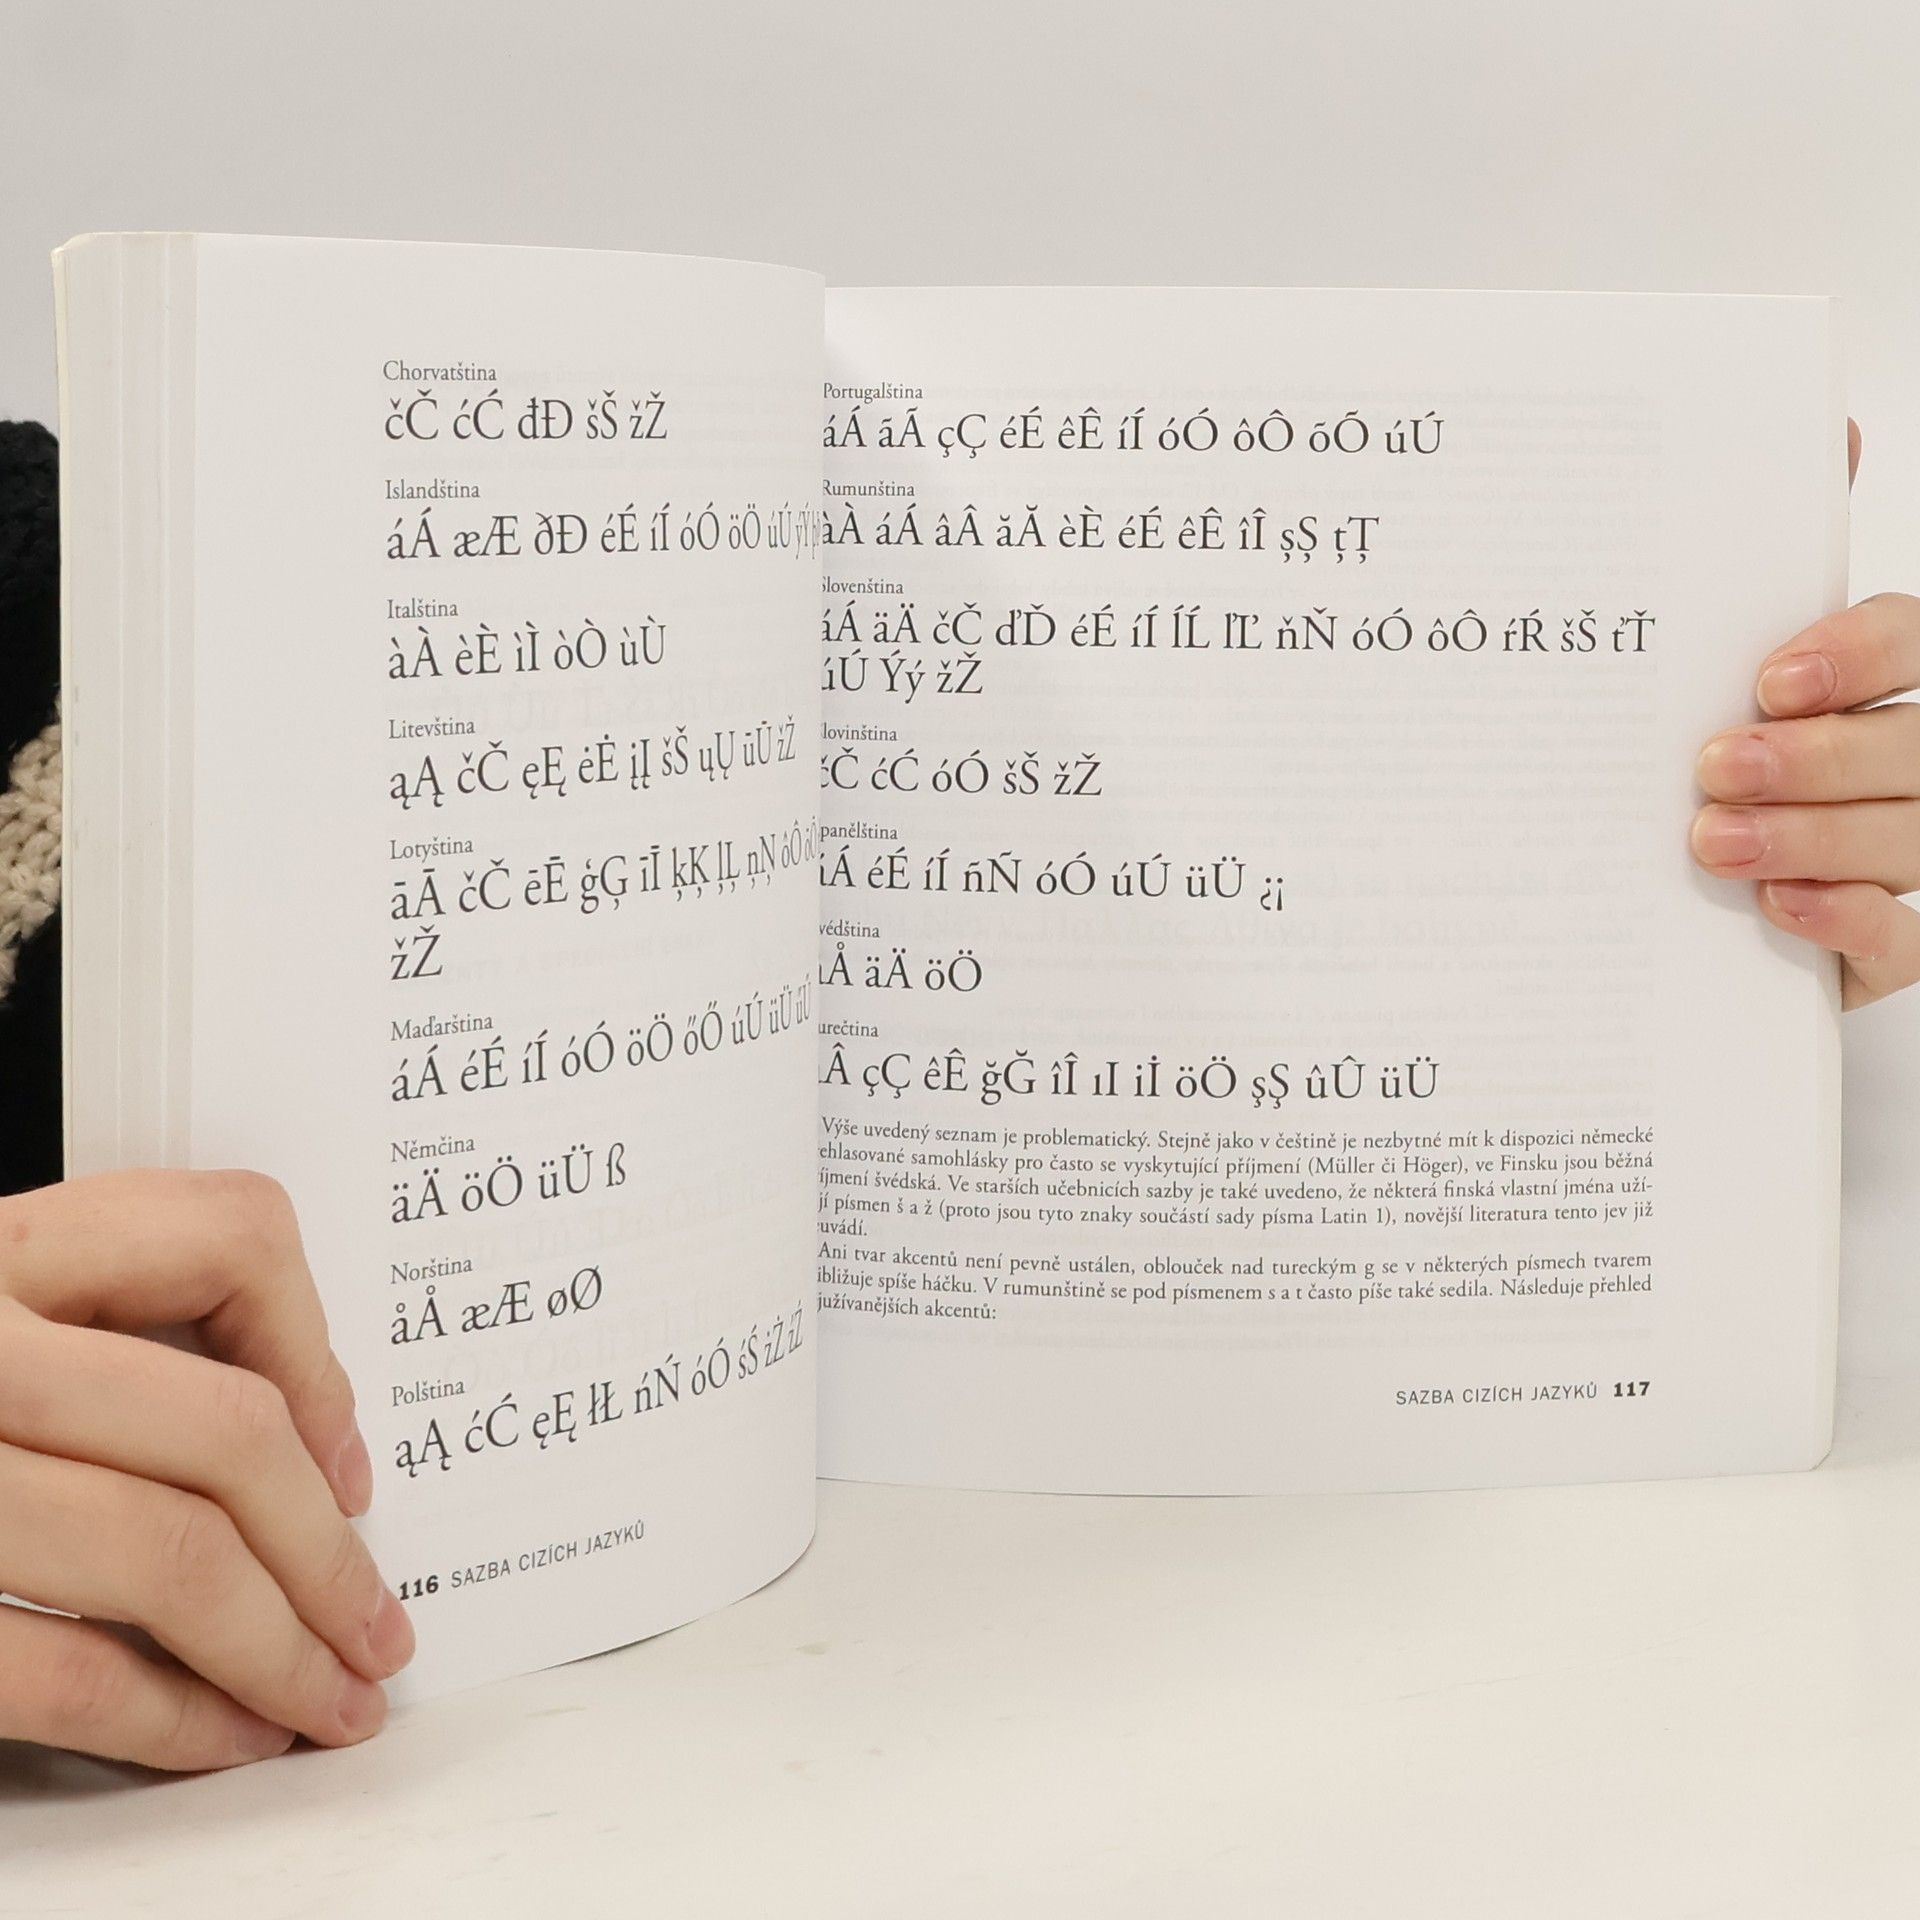 Chorvatština
čČ ćĆ đĐ šŠ žŽ
Islandština
áÁ æÆ ðÐ éÉ íÍ óÓ öÖ úÚ ýÝ
Italština
àÀ èÈ ìÌ òÒ ùÙ
Litevština
ąĄ čČ ęĘ ėĖ įĮ šŠ ųŲ ūŪ žŽ
Lotyština
āĀ čČ ēĒ ģĢ īĪ ķĶ ļĻ ņŅ ôÔ
žŽ
Maďarština
áÁ éÉ íÍ óÓ öÖ őŐ úÚ üÜ
Němčina
äÄ öÖ üÜ ß
Norština
åÅ æÆ øØ
Polština
ąĄ ćĆ ęĘ łŁ ńŃ óÓ śŚ żŻ źŹ
116 SAZBA CIZÍCH JAZYKŮ
Portugalština
áÁ ãÃ çÇ éÉ êÊ íÍ óÓ ôÔ õÕ úÚ
Rumunština
àÀ áÁ âÂ ăĂ èÈ éÉ êÊ îÎ șȘ țȚ
Slovenština
áÁ äÄ čČ ďĎ éÉ íÍ ĺĹ ľĽ ňŇ óÓ ôÔ ŕŔ šŠ ťŤ
úÚ Ýý žŽ
lovinština
čČ ćĆ óÓ šŠ žŽ
panělština
áÁ éÉ íÍ ñÑ óÓ úÚ üÜ ¿¡
védština
Å äÄ öÖ
urečtina
Â çÇ êÊ ğĞ îÎ ıI iİ öÖ şŞ ûÛ üÜ
Výše uvedený seznam je problematický. Stejně jako v češtině je nezbytné mít k dispozici německé
ehlasované samohlásky pro často se vyskytující příjmení (Müller či Höger), ve Finsku jsou běžná
íjmení švédská. Ve starších učebnicích sazby je také uvedeno, že některá finská vlastní jména uží-
jí písmen š a ž (proto jsou tyto znaky součástí sady písma Latin 1), novější literatura tento jev již
euvádí.
Ani tvar akcentů není pevně ustálen, oblouček nad tureckým g se v některých písmech tvarem
ibližuje spíše háčku. V rumunštině se pod písmenem s a t často píše také sedila. Následuje přehled
južívanějších akcentů:
SAZBA CIZÍCH JAZYKŮ 117